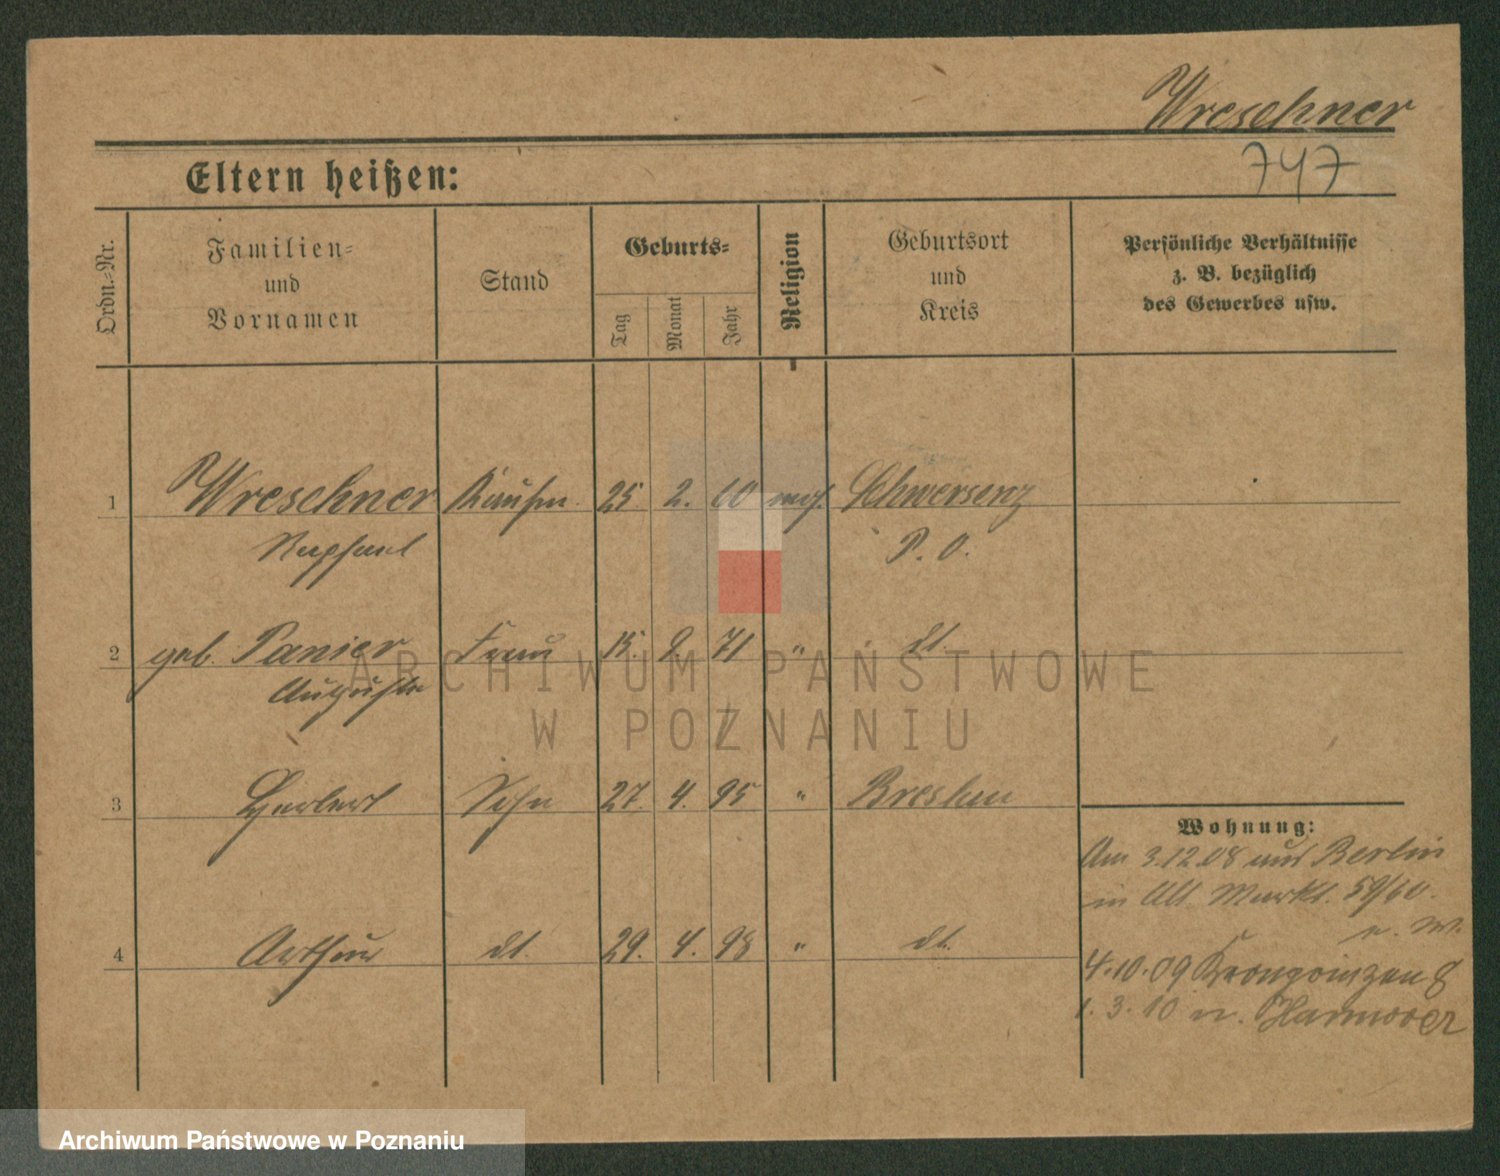 Wreschner
747
Eltern heißen:
Ordn.-Nr.
Familien-
und
Vornamen
Stand
Geburts-
Tag
Monat
Jahr
Religion
Geburtsort
und
Kreis
Persönliche Verhältnisse
z. B. bezüglich
des Gewerbes usw.
1 Wreschner Kaufm. 25. 2. 60 mos. Schwersenz
Raphael P. O.
2 geb. Panier Frau 15. 9. 71 " dt.
Auguste
3 Herbert Sohn 27. 4. 95 " Breslau
4 Arthur dt. 29. 4. 98 " dt.
Wohnung:
Am 3.12.08 aus Berlin
in Alt. Markt. 59/60.
n. W.
4.10.09 Kronprinzen 8
1.3.10 n. Hannover
ARCHIWUM PAŃSTWOWE
W POZNANIU
Archiwum Państwowe w Poznaniu